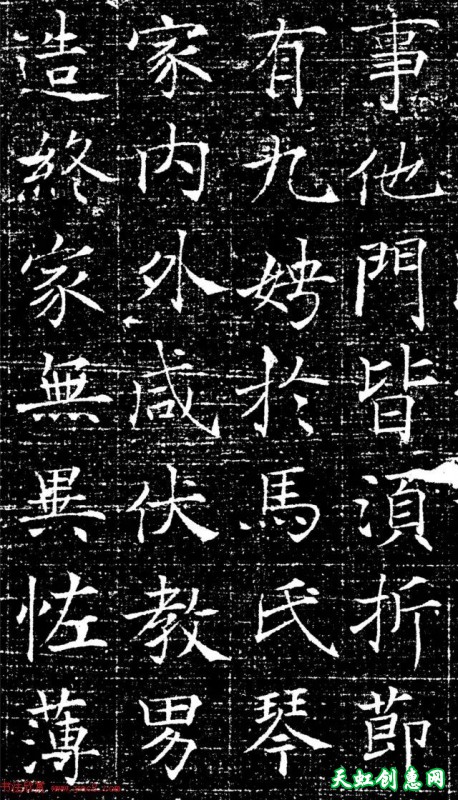 事他門皆湏折莭
有九娉於馬氏琴
家内外咸伏教男
造終家無異恠薄
天虹创意网